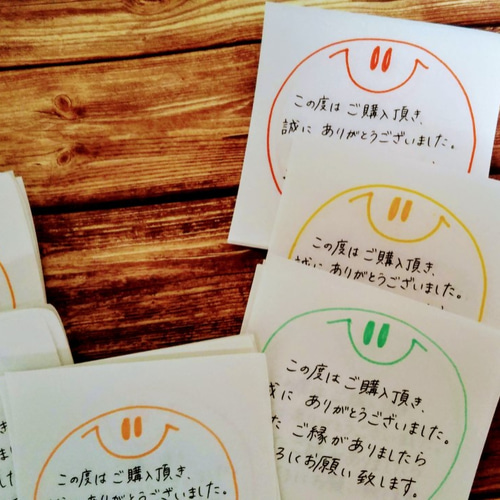 この度は ご購入頂き、
誠に ありがとうございました。
この度は ご購入頂き、
誠に ありがとうございました。
この度は ご購入頂き、
誠に ありがとうございました。
た ご縁がありましたら
ろしくお願い致します。
この度は ご購入頂き、
誠に ありがとうございました。